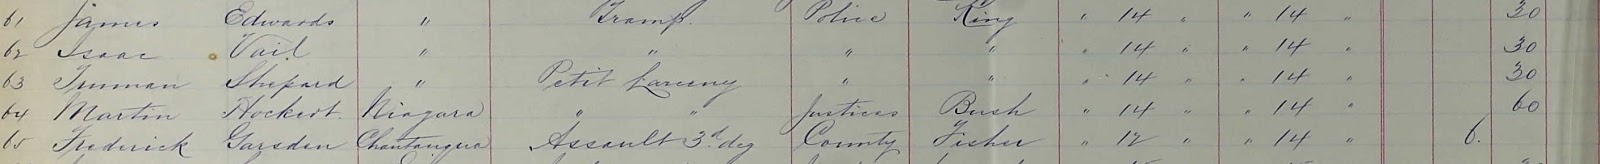 61 James Edwards " Tramp. Police King " 14 " " 14 " 30
62 Isaac Vail " " " " " 14 " " 14 " 30
63 Truman Shepard " Petit Larceny " " " 14 " " 14 " 30
64 Martin Hockert. Niagara " " Justices Bush " 14 " " 14 " 60
65 Frederick Garsden Chautauqua Assault 3.d deg County Fisher " 12 " " 14 " 6.